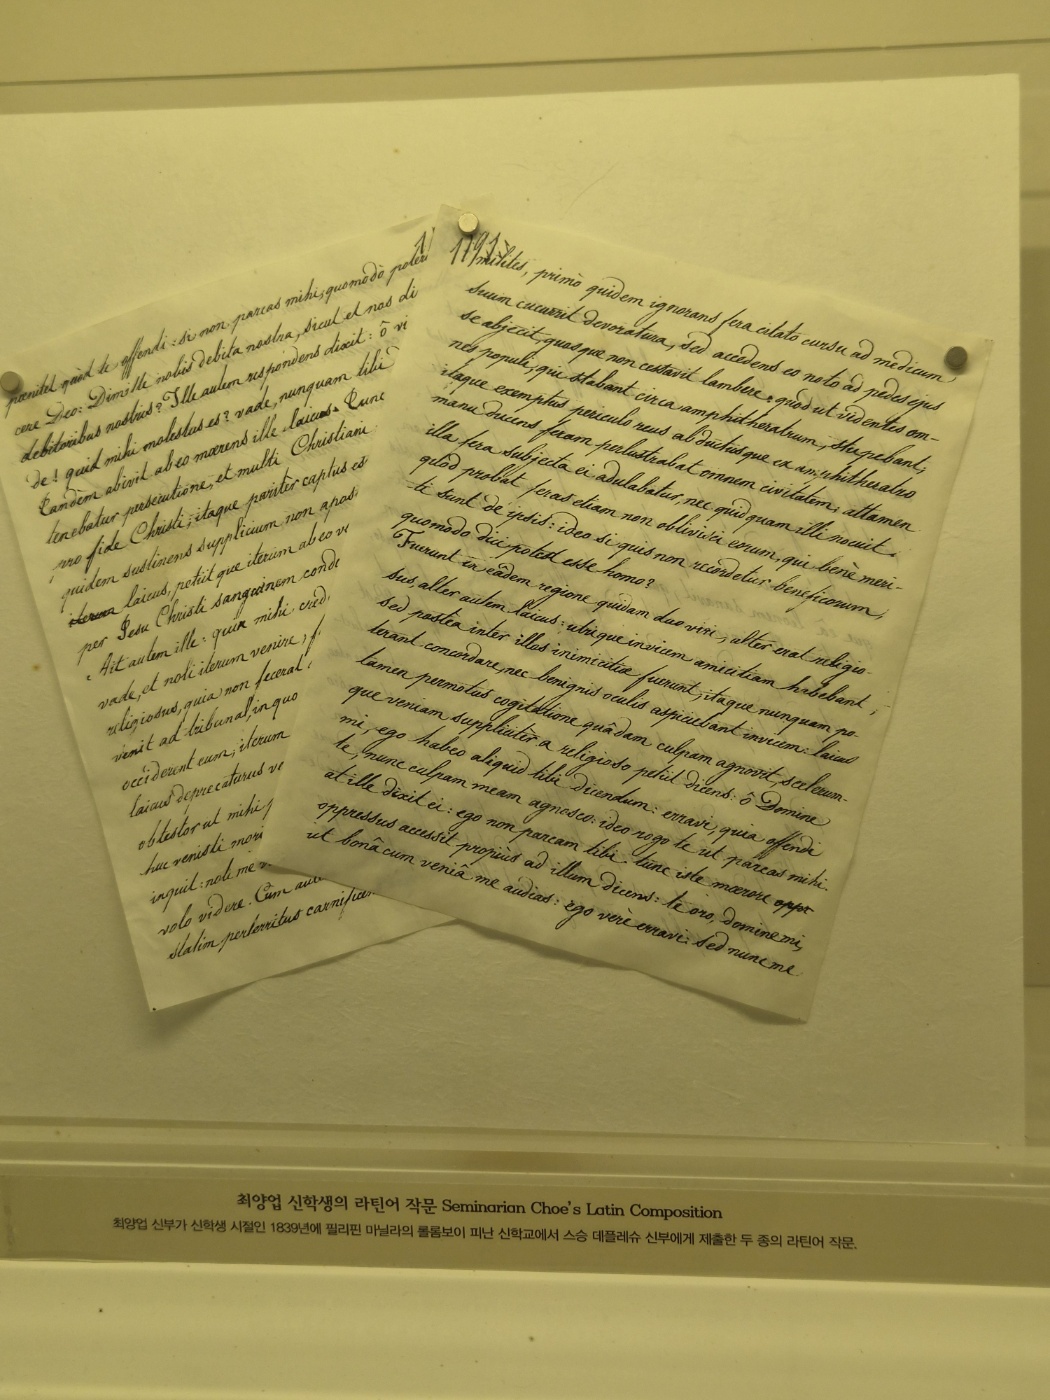 1
pœnitet quod te offendi: si non parcas mihi, quomodò poteri
cere Deo: Dimitte nobis debita nostra, sicut et nos di
debitoribus nostris? Ille autem respondens dixit: ô vi
de! quid mihi molestus es? vade, nunquam tibi
tandem abivit ab eo mœrens ille laicus. Tunc
tenebatur persecutione, et multi Christiani
pro fide Christi; itaque pariter captus es
quidem sustinens supplicium non apos
iterum laicus, petiit que iterum ab eo v
per Jesu Christi sanguinem cond
Ait autem ille: quia mihi, cred
vade, et noli iterum venire;
religiosus, quia non fecerat
venit ad tribunal, in quo
occiderent eum, iterum
laicus deprecaturus ve
obtestor ut mihi
huc venisti mori
inquit: noli me
volo videre. Cum aut
statim perterritus carnifice
1791
milites, primò quidem ignorans fera citato cursu ad medicum
suum cucurrit devoratura, sed accedens eo noto ad pedes ejus
se abjecit, quosque non cessavit lambere, quod ut videntes om-
nes populi, qui stabant circa amphitheatrum, stupebant;
itaque exemptus periculo reus abductusque ex amphitheatro
manu ducens feram perlustrabat omnem civitatem; attamen
illa fera subjecta ei adulabatur, nec quidquam illi nocuit.
quòd probat feras etiam non oblivisci eorum, qui benè meri-
ti sunt de ipsis: ideo si quis non recordetur beneficorum,
quomodo dici potest esse homo?
Fuerunt in eadem regione quidam duo viri, alter erat religio-
sus, alter autem laicus: utrique invicem amicitiam habebant,
sed postea inter illos inimicitiæ fuerunt; itaque nunquam po-
terant concordare, nec benignis oculis aspiciebant invicem: laicus
tamen permotus cogitatione quâdam culpam agnovit scelerum-
que veniam suppliciter a religioso petiit dicens: ô Domine
mi, ego habeo aliquid tibi dicendum: erravi, quia offendi
te, nunc culpam meam agnosco: ideo rogo te ut parcas mihi.
at ille dixit ei: ego non parcam tibi. tunc iste mœrore oppr
oppressus accessit propiùs ad illum dicens: te oro, domine mi,
ut bonâ cum veniâ me audias: ego verè erravi: sed nunc me
최양업 신학생의 라틴어 작문 Seminarian Choe's Latin Composition
최양업 신부가 신학생 시절인 1839년에 필리핀 마닐라의 롤롬보이 피난 신학교에서 스승 데플레슈 신부에게 제출한 두 종의 라틴어 작문.